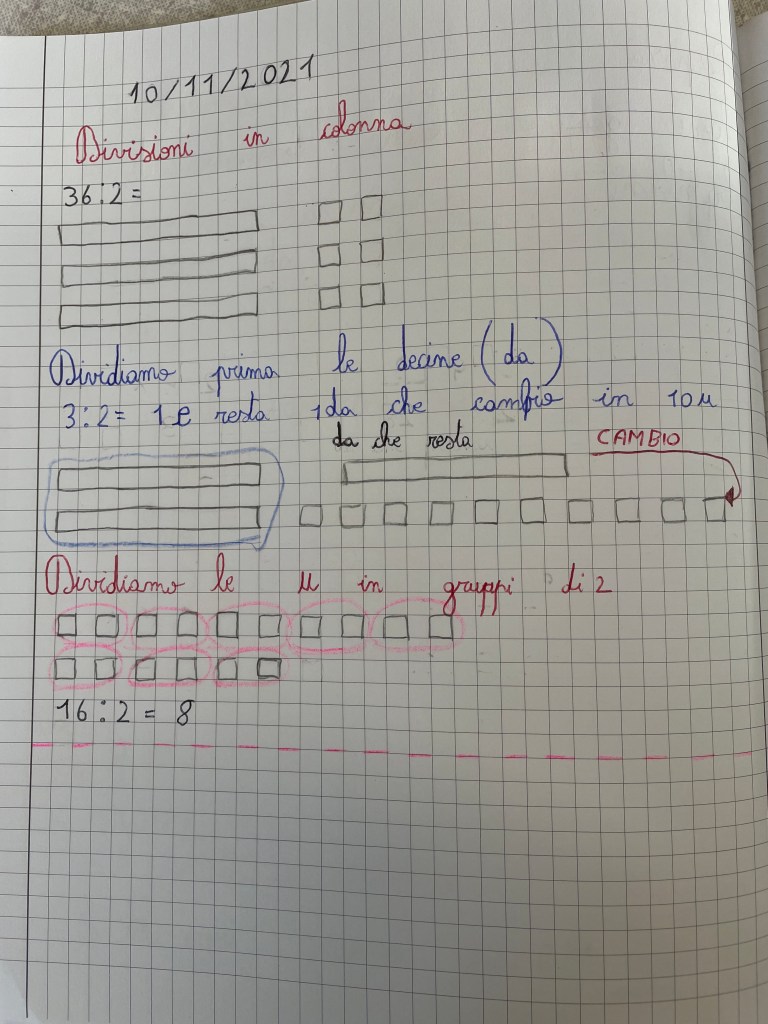 10/11/2021
Divisioni in colonna
36:2=
Dividiamo prima le decine (da)
3:2= 1 e resta 1da che cambio in 10u
da che resta CAMBIO
Dividiamo le u in gruppi di 2
16:2 = 8